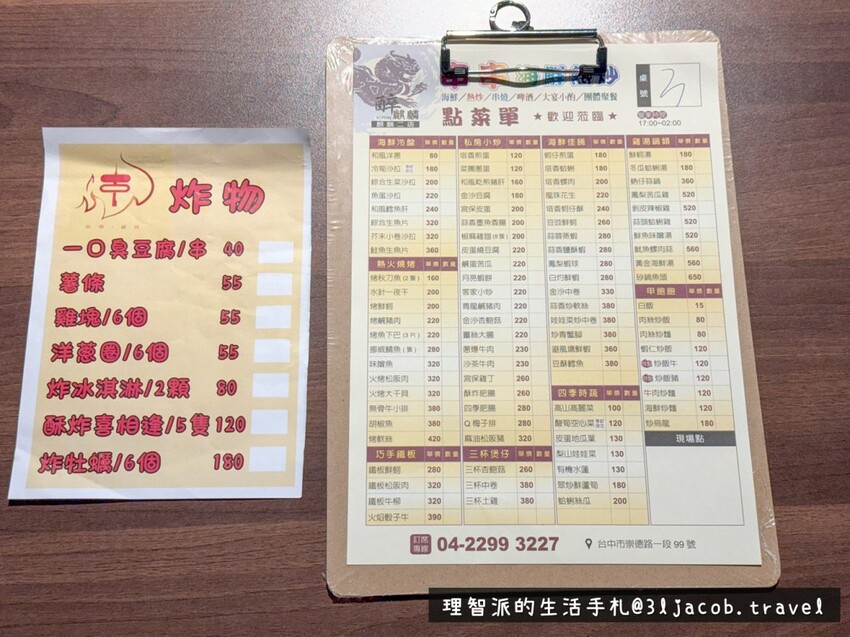 炸物
一口臭豆腐/串 40
薯條 55
雞塊/6個 55
洋蔥圈/6個 55
炸冰淇淋/2顆 80
酥炸喜相逢/5隻 120
炸牡蠣/6個 180
醉麒麟
海鮮/熱炒/串燒/啤酒/大宴小酌/團體聚餐
點菜單 ★歡迎蒞臨★
桌號 3
17:00~02:00
海鮮冷盤 單價 數量
和風洋蔥 80
冷筍沙拉 180
綜合生菜沙拉 200
魚蛋沙拉 220
和風鱈魚肝 240
綜合生魚片 320
芥末小卷沙拉 320
鮭魚生魚片 360
熱火燒烤 單價 數量
烤秋刀魚(2隻) 160
水針一夜干 200
烤鮮蚵 200
烤鹹豬肉 220
烤魚下巴(3片) 220
挪威鯖魚(隻) 280
味噌魚 320
火烤松阪肉 320
火烤大干貝 320
無骨牛小排 380
胡椒魚 380
烤軟絲 420
巧手鐵板 單價 數量
鐵板鮮蚵 280
鐵板松阪肉 320
鐵板牛柳 320
火焰骰子牛 390
私房小炒 單價 數量
塔香煎蛋 120
菜脯蔥蛋 120
和風乾煎豬肝 160
金沙豆腐 180
宮保皮蛋 200
蒜香墨魚香腸 200
椒麻雞翅 200
皮蛋燒豆腐 220
鹹蛋苦瓜 220
月亮蝦餅 220
客家小炒 220
青龍鹹豬肉 220
金沙杏鮑菇 220
薑絲大腸 220
蔥爆牛肉 230
沙茶牛肉 230
宮保雞丁 260
酥炸肥腸 260
四季肥腸 280
Q梅子排 280
麻油松阪豬 320
三杯煲仔 單價 數量
三杯杏鮑菇 260
三杯中卷 380
三杯土雞 380
海鮮佳餚 單價 數量
蚵仔煎蛋 180
塔香蛤蜊 180
塔香螺肉 200
龍珠花生 220
塔香蚵仔酥 240
豆豉鮮蚵 260
蒜蓉蒸蝦 280
蒜香鹽酥蝦 280
鳳梨蝦球 280
白灼鮮蝦 280
金沙中卷 330
蒜香炒軟絲 380
娃娃菜炒中卷 380
炒青蟹腳 380
避風塘鮮蝦 360
豆酥鱈魚 380
四季時蔬 單價 數量
高山高麗菜 100
腐乳空心菜 120
皮蛋地瓜葉 130
梨山娃娃菜 130
有機水蓮 130
翠炒鮮蘆筍 180
蛤蜊絲瓜 200
雞湯鍋類 單價 數量
鮮蚵湯 180
冬瓜蛤蜊湯 180
魩仔蒜鍋 360
鳳梨苦瓜雞 520
剝皮辣椒雞 520
蒜頭蛤蜊雞 520
鮮魚味噌湯 520
魷魚螺肉蒜 560
黃金海鮮湯 560
砂鍋魚頭 650
甲飽飽 單價 數量
白飯 15
肉絲炒飯 80
肉絲炒麵 80
蝦仁炒飯 120
炒飯牛 120
炒飯豬 120
牛肉炒麵 120
海鮮炒麵 120
炒烏龍 180
現場點
訂席專線 04-2299 3227 台中市崇德路一段99號
理智派的生活手札@3ljacob.travel